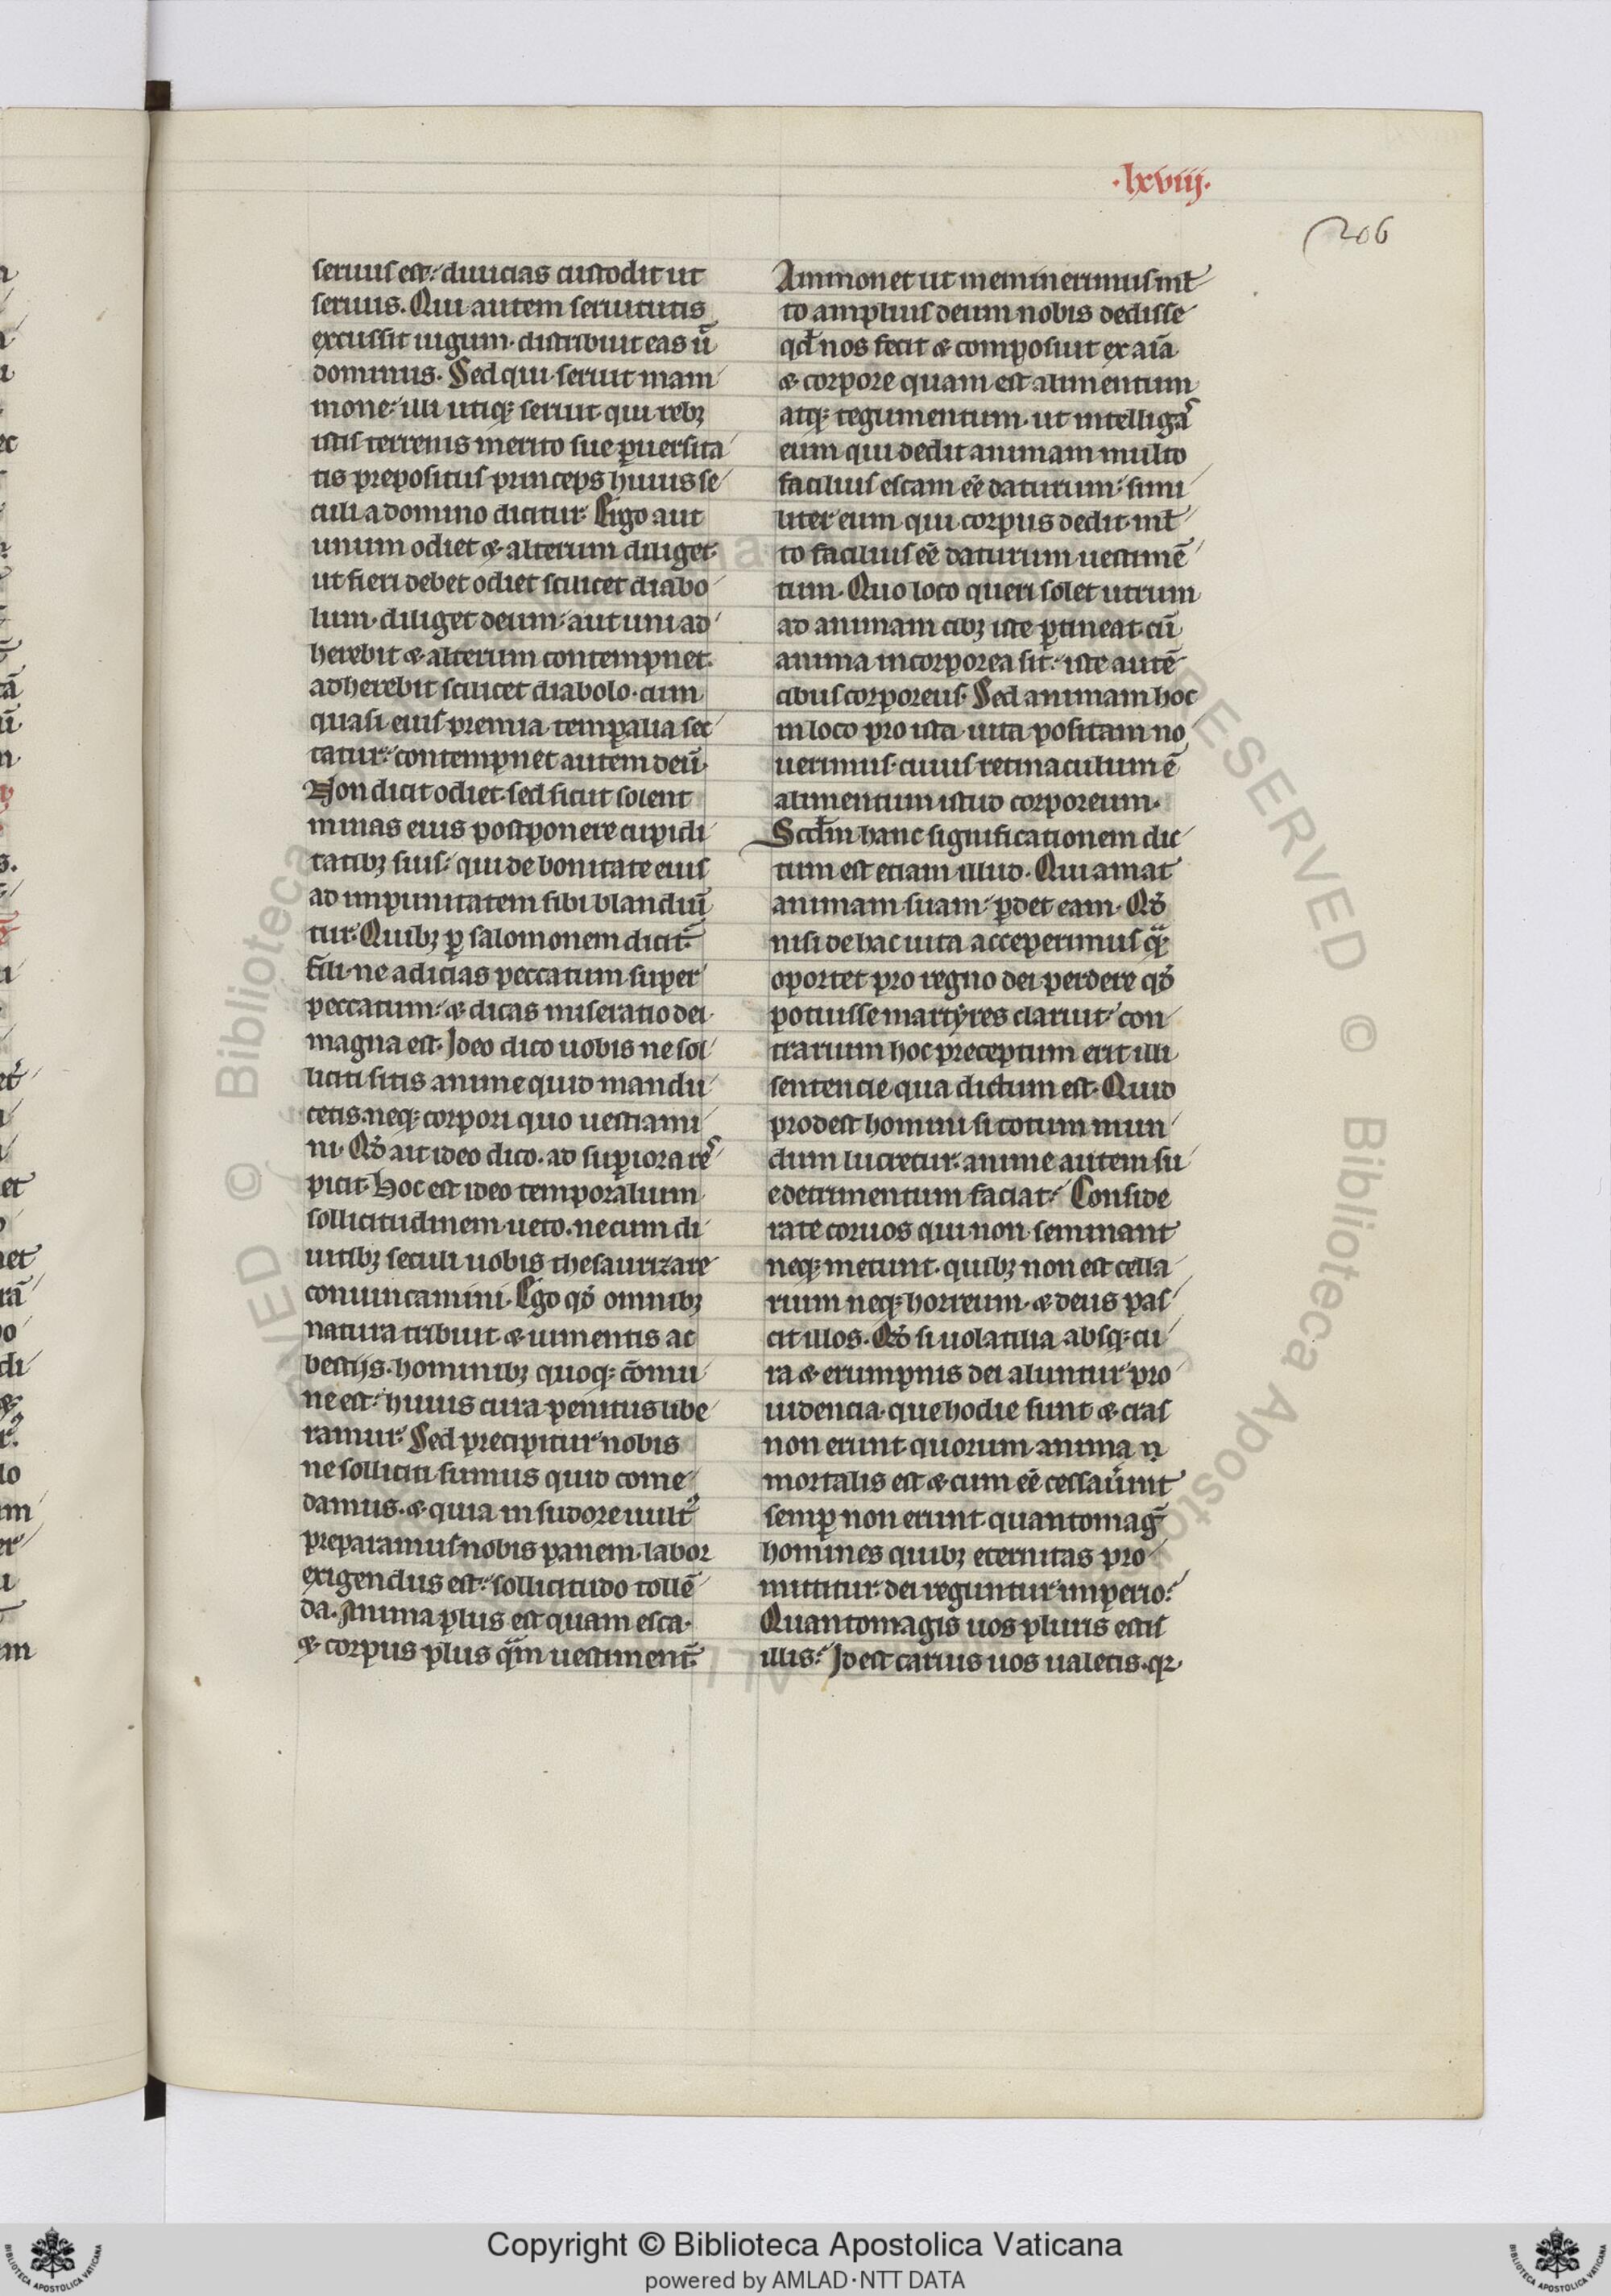 ·lxviij·
206
seruus est: diuicias custodit ut
seruus. Qui autem seruitutis
excussit iugum. distribuit eas ū
dominus. Sed qui seruit mam
mone: illi utiqꝫ seruit qui rebꝫ
istis terrenis merito sue ꝑuersita
tis prepositus princeps huius se
culi a domino dicitur. Ergo aut
unum odiet & alterum diliget.
ut fieri debet odiet scilicet diabo
lum. diliget deum: aut uni ad
herebit & alterum contempnet.
adherebit scilicet diabolo. cum
quasi eius premia temꝑalia sec
tatur: contempnet autem deū.
Non dicit odiet. sed sicut solent
minas eius postponere cupidi
tatibꝫ suis: qui de bonitate eius
ad impunitatem sibi blandiū
tur. Quibꝫ ꝑ salomonem dicit᷑.
fili. ne adicias peccatum super
peccatum: & dicas miseratio dei
magna est. Ideo dico uobis ne sol
liciti sitis anime quid mandu
cetis. neqꝫ corpori quo uestiami
ni. Qd̓ ait ideo dico. ad suꝑiora re˜
picit. Hoc est ideo temporalium
sollicitudinem ueto. ne cum di
uitibꝫ seculi uobis thesaurizare
conuincamini. Ergo qd̓ omnibꝫ
natura tribuit & iumentis ac
bestijs. hominibꝫ quoqꝫ cōmu
ne est: huius cura penitus libe
ramur. Sed precipitur nobis
ne solliciti simus quid come
damus. & quia in sudore uult᷒
preparamus nobis panem. labor
exigendus est: sollicitudo tollē
da. Anima plus est quam esca.
& corpus plus qͣm uestiment᷑.
Ammonet ut meminerimus ml̃
to amplius deum nobis dedisse
qd̓ nos fecit & composuit ex aīa
& corpore quam est alimentum
atqꝫ tegumentum. ut intelligaˢ
eum qui dedit animam multo
facilius escam eē daturum: simi
liter eum qui corpus dedit. ml̃
to facilius eē daturum uestimē
tum. Quo loco queri solet utrum
ad animam cibꝫ iste ꝑtineat. cū
anima incorporea sit: iste autē
cibus corporeus. Sed animam hoc
in loco pro ista uita positam no
uerimus. cuius retinaculum ē
alimentum istud corporeum.
Scd̓m hanc significationem dic
tum est etiam illud. Qui amat
animam suam: ꝑdet eam. Qd̓
nisi de hac uita acceperimus qͣꝫ
oportet pro regno dei perdere qd̓
potuisse martẏres claruit: con
trarium hoc preceptum erit illi
sentencie qua dictum est. Quid
prodest homini si totum mun
dum lucretur. anime autem su
e detrimentum faciat: Conside
rate coruos qui non seminant
neqꝫ metunt. quibꝫ non est cella
rium neqꝫ horreum. & deus pas
cit illos. Qd̓ si uolatilia absqꝫ cu
ra & erumpnis dei aluntur pro
uidencia. que hodie sunt & cras
non erunt quorum anima n̄
mortalis est & cum eē cessaūint
semꝑ non erunt. quantomag̃
homines quibꝫ eternitas pro
mittitur. dei reguntur imperio:
Quantomagis uos pluris estis
illis: Id est carius uos ualetis. qꝛ
Copyright © Biblioteca Apostolica Vaticana
powered by AMLAD·NTT DATA